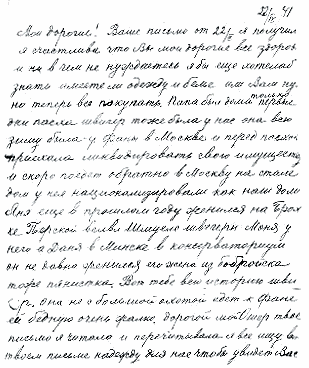 22/IX 41
Мои дорогие! Ваше письмо от 22/8 я получил
я счастлива что Вы мои дорогие все здоровы
и ни в чем не нуждаетесь я бы еще хотела б
знать имеете ли одежду и белье или Вам ну-
но теперь все покупать. Папа был дома только первые
дни после тоже была у нас она всю
зиму была у Фани в Москве и перед пасхой
приехала ликвидировать свою имущество
и скоро поедет обратно в Москву на стале
дом у нея национализировали как наш дом
Яша еще в прошлом году женился на Брон
ке Шмуела Моня у
него а Даня в Минске в консерватории
он не давно женился его жена из Бобруйска
тоже пянистка. Вот тебе всю историю
Она не с большой охотой едет к Фане
ей бедную очень жалко. дорогой мой твое
письмо я читала и перечитывала я все ищу в
твоем письме надежду для нас чтобы увидеть Вас